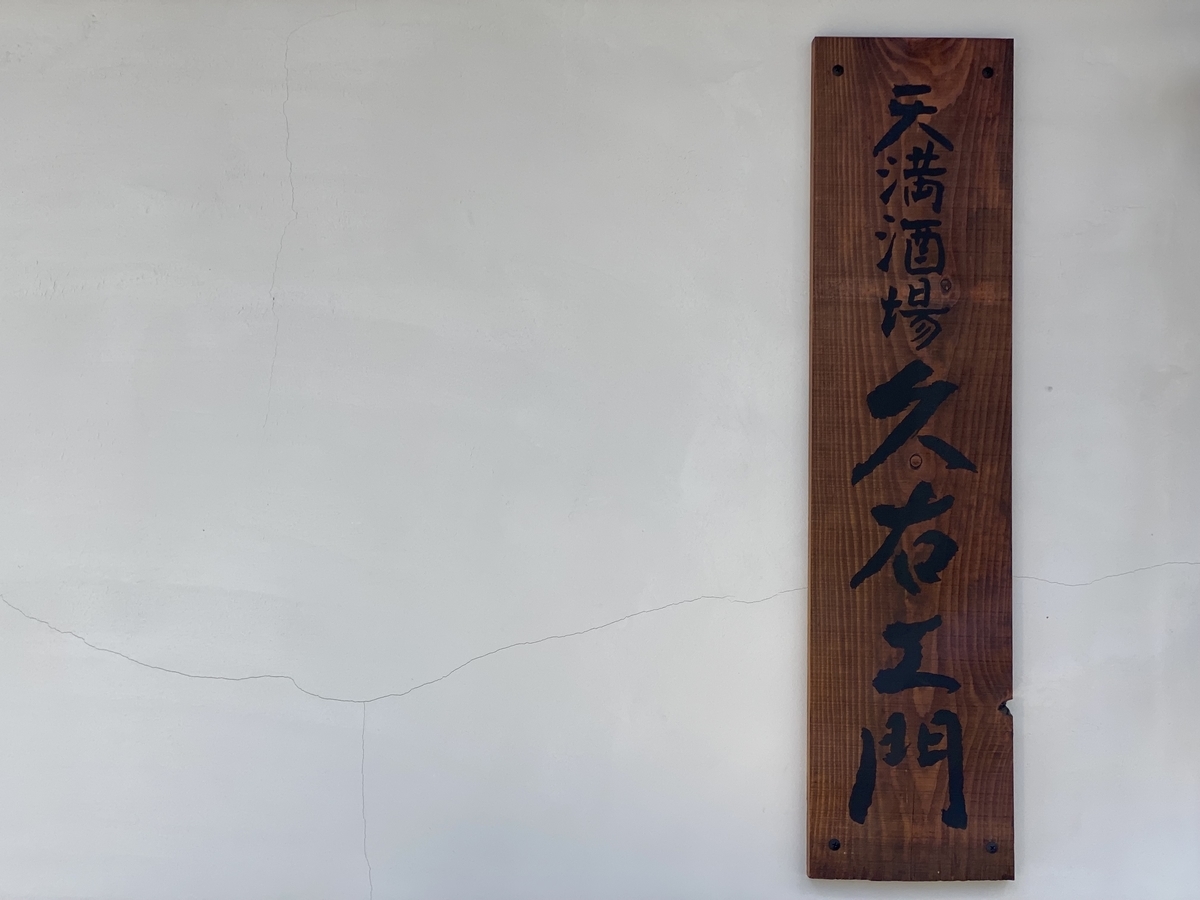 天満酒場久右エ門